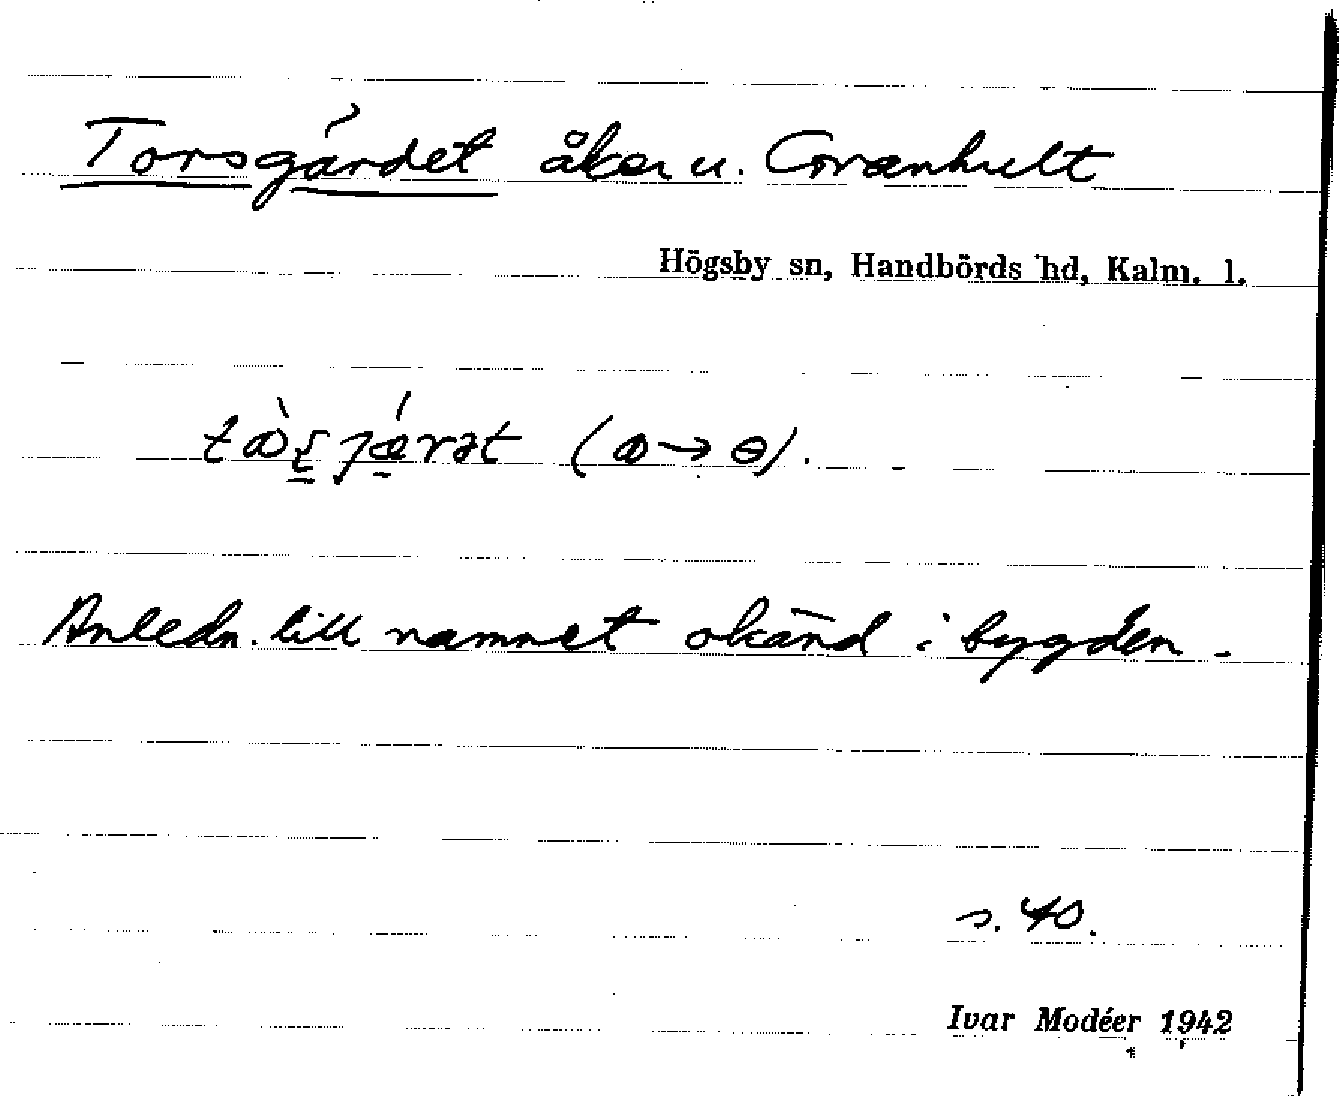 Torsgärdet åker u. Granhult
Högsby sn, Handbörds hd, Kalm. l.
Anledn. till namnet okänd i bygden.
s. 40.
Ivar Modéer 1942